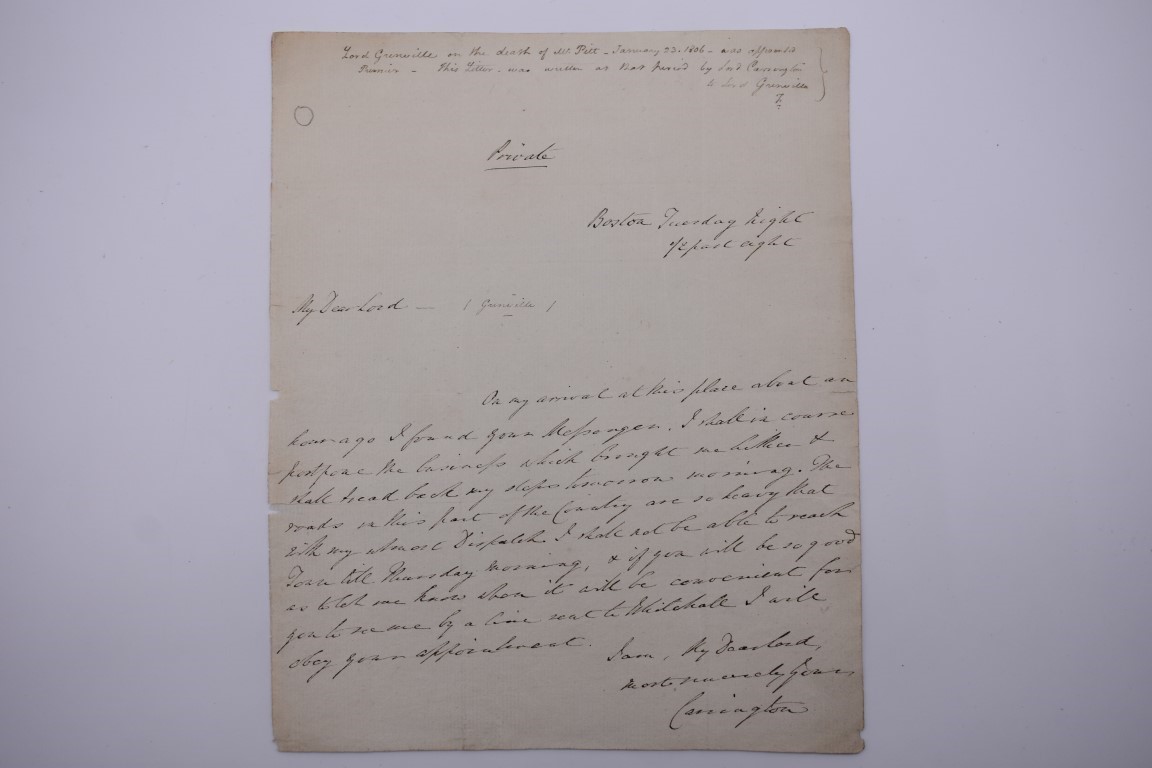 Lord Grenville on the death of Mr Pitt - January 23. 1806 - was appointed
Premier - this Letter - was written at that Period by Lord Carrington
to Lord Grenville
Private
Boston Tuesday Night
1/2 past eight
My Dear Lord - ( Grenville )
On my arrival at this place about an
hour ago I found your Messenger. I shall in course
postpone the business which brought me hither &
shall tread back my steps tomorrow morning. The
roads in this part of the Country are so heavy that
with my utmost Dispatch I shall not be able to reach
Town till Thursday Morning, & if you will be so good
as to let me know when it will be convenient for
you to see me by a line sent to Whitehall I will
obey your appointment.
I am, My Dear Lord,
most sincerely Yours
Carrington